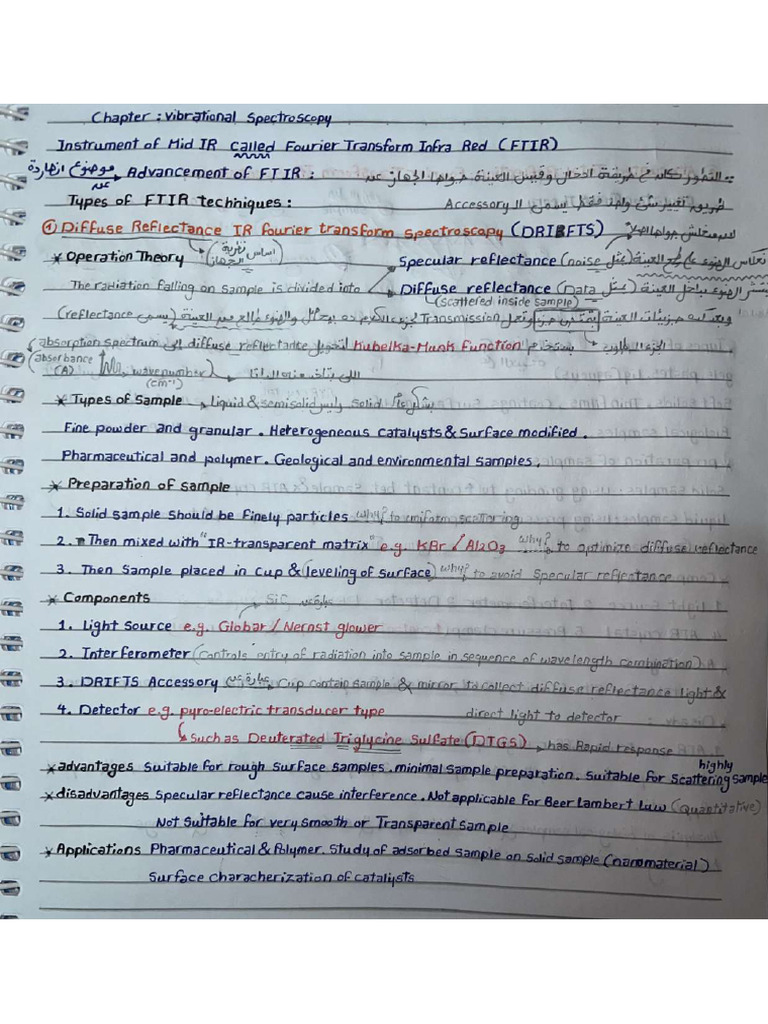 Chapter : Vibrational Spectroscopy
Instrument of Mid IR called Fourier Transform Infra Red (FTIR)
موضوع انهاردة عن Advancement of FTIR : التطور كان في طريقة ادخال وقياس العينة جوا الجهاز عن
Types of FTIR techniques : طريق تغيير شئ واحد فقط يسمى ال Accessory
① Diffuse Reflectance IR fourier transform spectroscopy (DRIFTS)
* Operation Theory (اساس نظرية الجهاز) Specular reflectance (noise بتمثل) تعكس الضوء على سطح العينة
The radiation falling on sample is divided into Diffuse reflectance (Data بتمثل) بينتشر الضوء بداخل العينة
(scattered inside sample)
(reflectance يسمى) Transmission
absorption spectrum الى diffuse reflectance لتحويل Kubelka-Munk Function بستخدم
(absorbance (A) wavenumber (cm⁻¹))
* Types of Sample liquid & semisolid وليس solid
Fine powder and granular . Heterogeneous catalysts & Surface modified .
Pharmaceutical and polymer . Geological and environmental samples .
* Preparation of sample
1. Solid sample should be finely particles why? to uniform scattering
2. Then mixed with "IR-transparent matrix" e.g. KBr / Al2O3 why? to optimize diffuse reflectance
3. Then Sample placed in cup & (leveling of surface) why? to avoid Specular reflectance
* Components SiC عبارة عن
1. Light Source e.g. Globar / Nernst glower
2. Interferometer (controls entry of radiation into sample in sequence of wavelength combination)
3. DRIFTS Accessory عبارة عن Cup contain sample & mirror to collect diffuse reflectance light &
4. Detector e.g. pyro-electric transducer type direct light to detector
such as Deuterated Triglycine Sulfate (DTGS) has Rapid response
* advantages Suitable for rough surface samples . minimal sample preparation . Suitable for highly Scattering sample
* disadvantages Specular reflectance cause interference . Not applicable for Beer Lambert Law (Quantitative)
Not Suitable for very smooth or Transparent sample
* Applications Pharmaceutical & Polymer . Study of adsorbed sample on solid sample (nanomaterial)
Surface characherization of catalysts